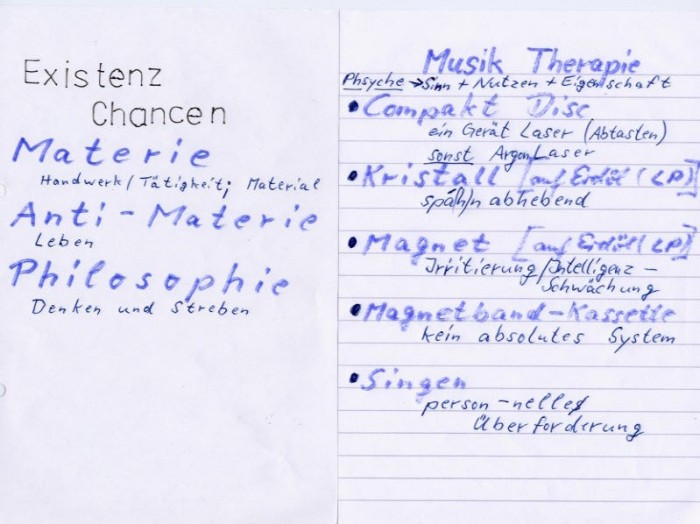 Existenz
Chancen
Materie
Handwerk/Tätigkeit; Material
Anti-Materie
Leben
Philosophie
Denken und Streben
Musik Therapie
Phsyche → Sinn + Nutzen + Eigenschaft
• Compakt Disc
ein Gerät Laser (Abtasten)
sonst Argon Laser
• Kristall [auf Erdöl (LP)]
späh/n abhebend
• Magnet [auf Erdöl (LP)]
Irritierung/Intelligenz-
Schwächung
• Magnetband-Kassette
kein absolutes System
• Singen
person-nelles
Überforderung